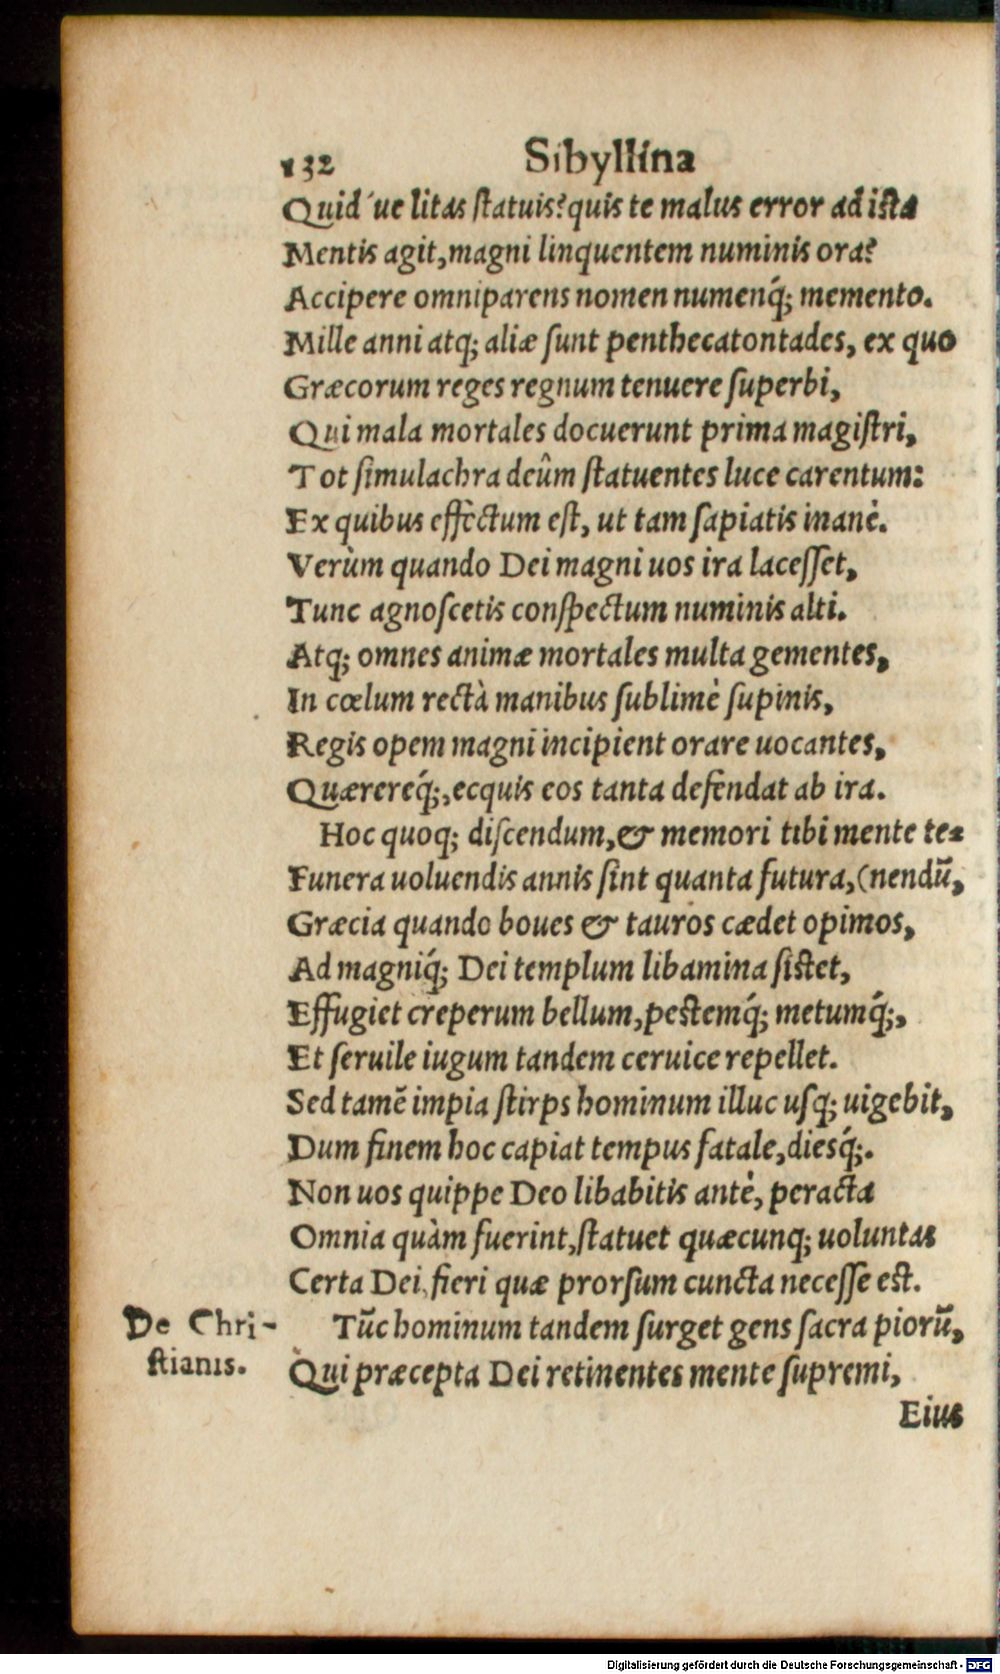 132 Sibyllina
Quid´ue litas ſtatuis? quis te malus error ad iſta
Mentis agit, magni linquentem numinis ora?
Accipere omniparens nomen numenq́; memento.
Mille anni atq; aliæ ſunt penthecatontades, ex quo
Græcorum reges regnum tenuere ſuperbi,
Qui mala mortales docuerunt prima magiſtri,
Tot ſimulachra deûm ſtatuentes luce carentum:
Ex quibus effectum eſt, ut tam ſapiatis inanè.
Verùm quando Dei magni uos ira laceſſet,
Tunc agnoſcetis conſpectum numinis alti.
Atq; omnes animæ mortales multa gementes,
In cœlum rectà manibus ſublimè ſupinis,
Regis opem magni incipient orare uocantes,
Quærereq́;, ecquis eos tanta defendat ab ira.
Hoc quoq; diſcendum, & memori tibi mente te=
Funera uoluendis annis ſint quanta futura, (nendū,
Græcia quando boues & tauros cædet opimos,
Ad magniq́; Dei templum libamina ſiſtet,
Effugiet creperum bellum, peſtemq́; metumq́;,
Et ſeruile iugum tandem ceruice repellet.
Sed tamē impia ſtirps hominum illuc uſq; uigebit,
Dum finem hoc capiat tempus fatale, diesq́;.
Non uos quippe Deo libabitis antè, peracta
Omnia quàm fuerint, ſtatuet quæcunq; uoluntas
Certa Dei, fieri quæ prorſum cuncta neceſſe eſt.
De Chri-
ſtianis.
Tūc hominum tandem ſurget gens ſacra piorū,
Qui præcepta Dei retinentes mente ſupremi,
Eius
Digitalisierung gefördert durch die Deutsche Forschungsgemeinschaft - DFG